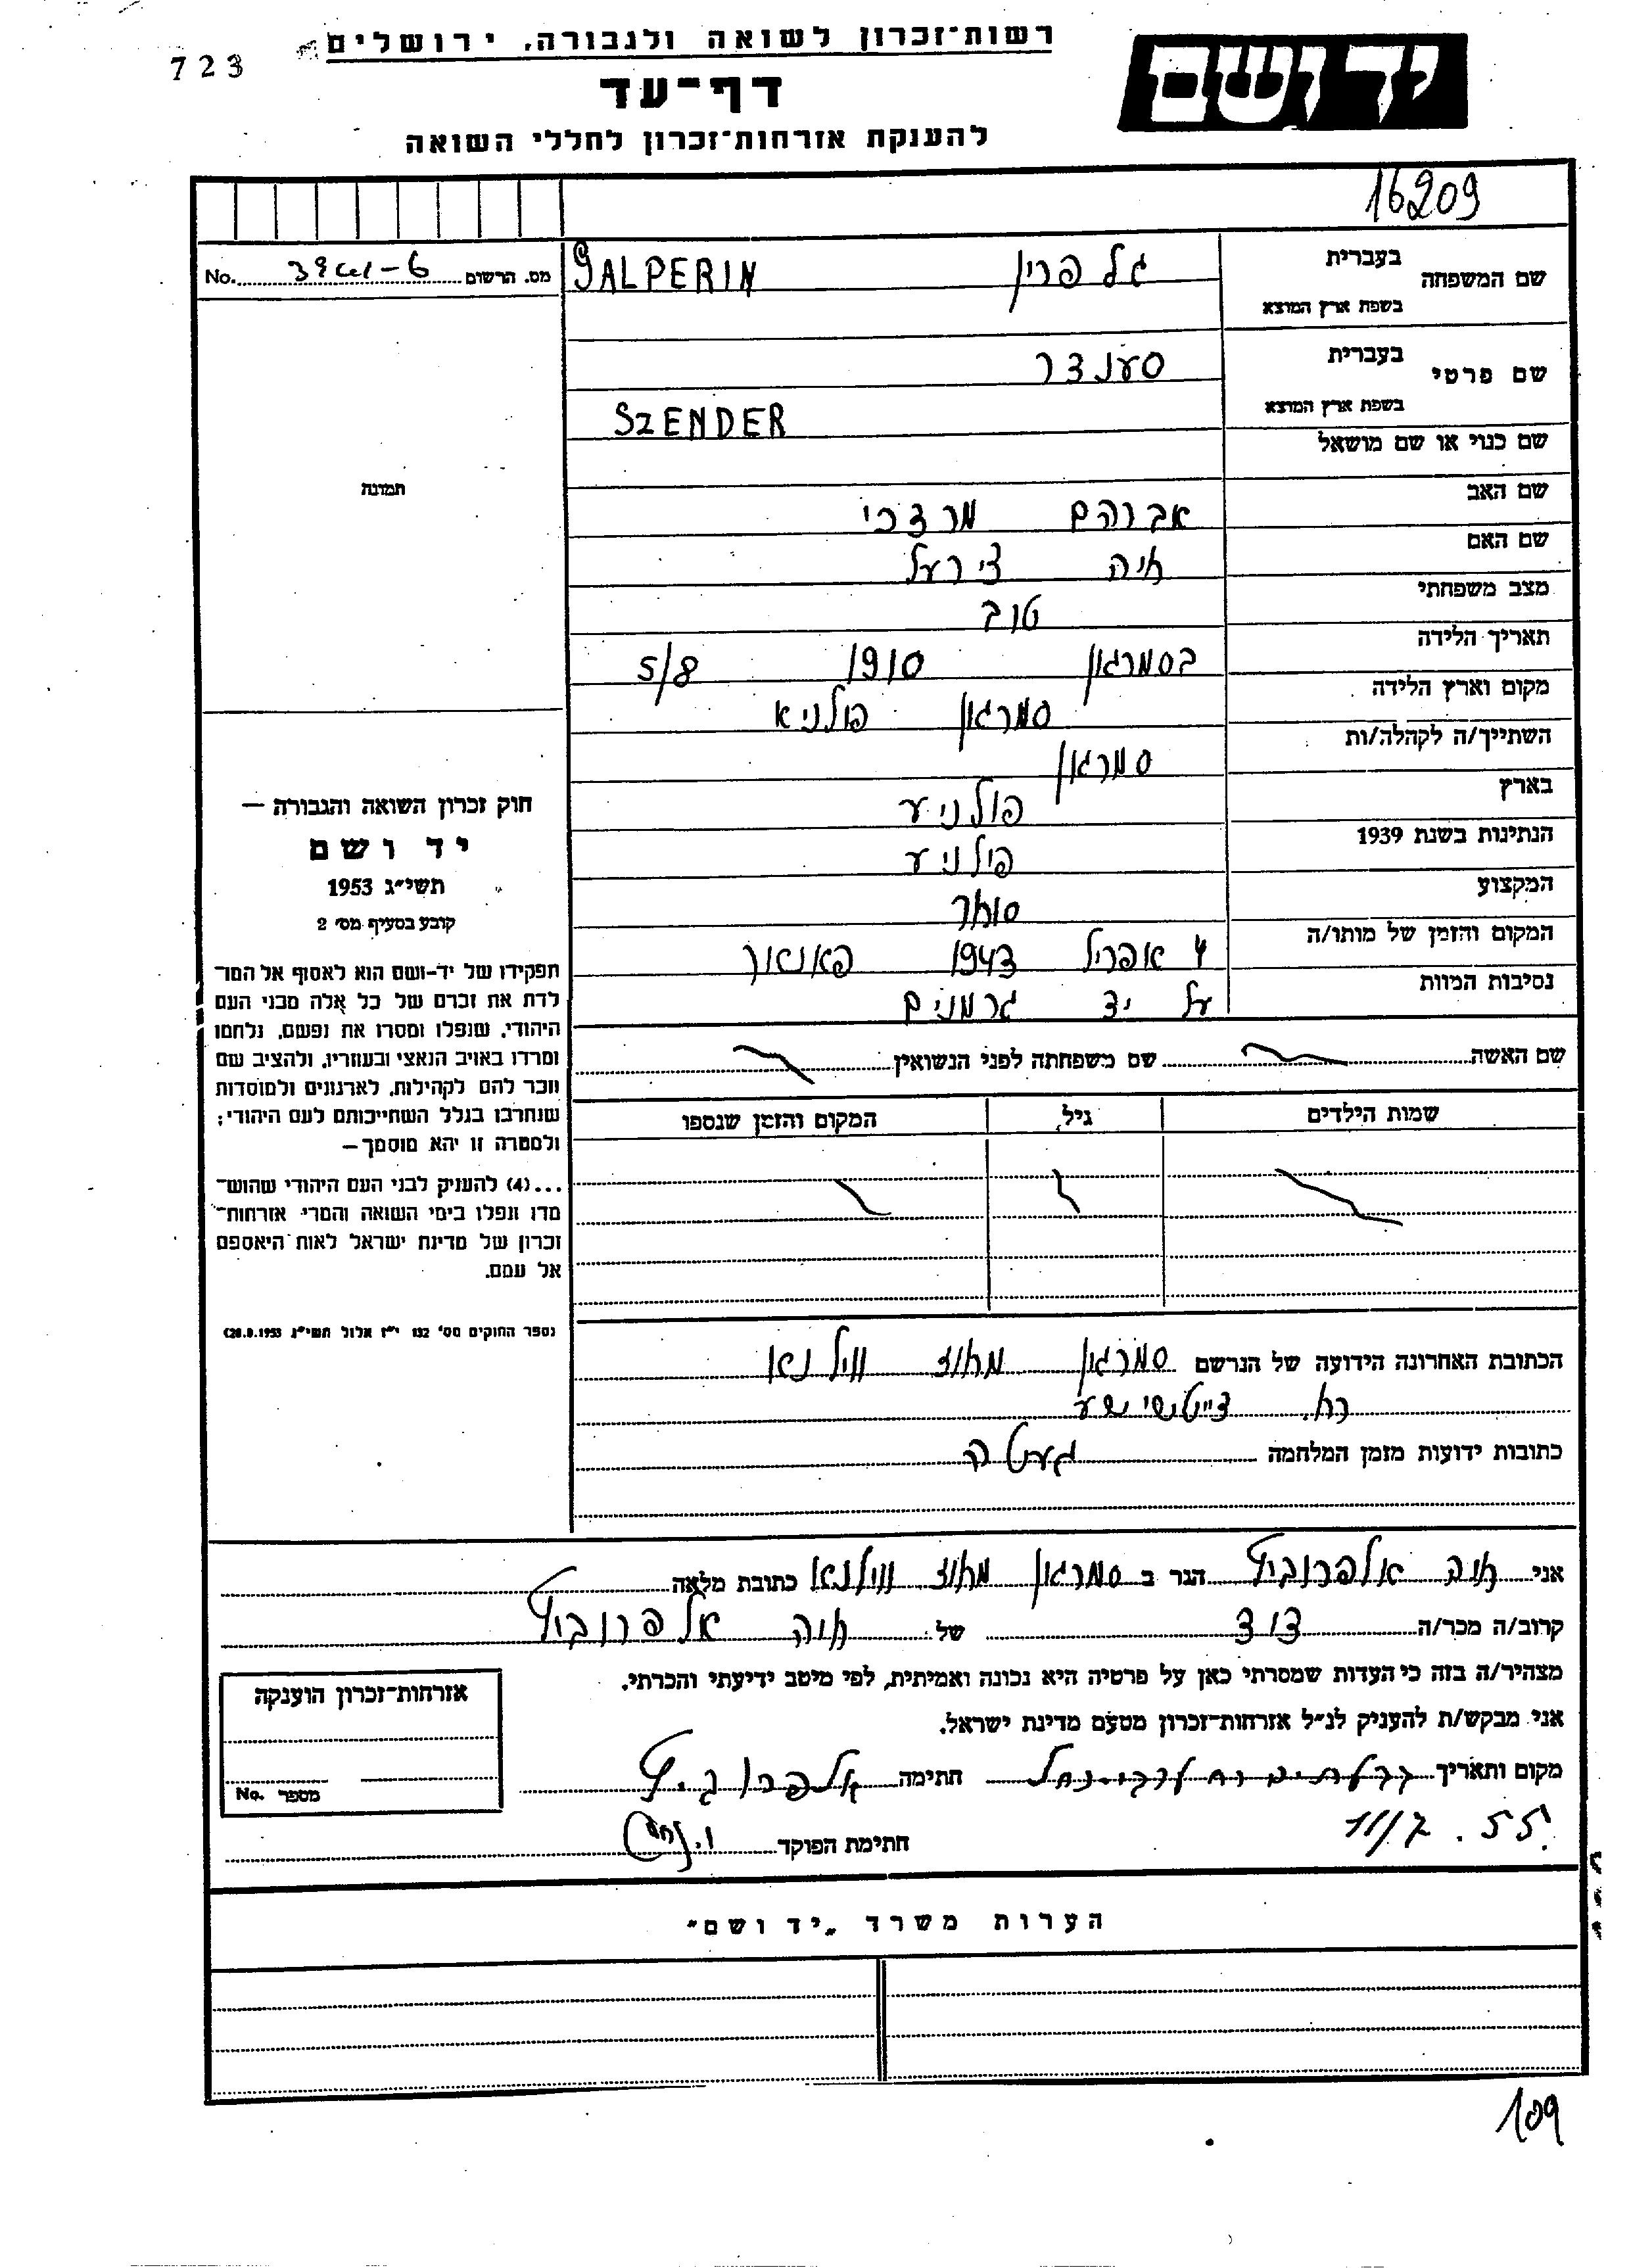 רשות־זכרון לשואה ולגבורה, ירושלים
723
יד ושם
דף־עד
להענקת אזרחות־זכרון לחללי השואה
16209
מס. הרשום No.
שם המשפחה בעברית גלפרין
בשפת ארץ המוצא GALPERIN
שם פרטי בעברית סענדר
בשפת ארץ המוצא SZENDER
שם כנוי או שם מושאל
שם האב אברהם מרדכי
שם האם חיה צירעל
מצב משפחתי טוב
תאריך הלידה בסמרגון 1910 5/8
מקום וארץ הלידה סמרגון פולניא
השתייך/ה לקהלה/ות סמרגון
בארץ פולניע
הנתינות בשנת 1939 פולניע
המקצוע סוחר
המקום והזמן של מותו/ה 4 אפריל 1943 פאנאר
נסיבות המוות על יד גרמנים
שם האשה
שם משפחתה לפני הנשואין
שמות הילדים גיל המקום והזמן שנספו
תמונה
חוק זכרון השואה והגבורה —
יד ושם
תשי״ג 1953
קובע בסעיף מס׳ 2
תפקידו של יד-ושם הוא לאסוף אל המו־
לדת את זכרם של כל אלה מבני העם
היהודי, שנפלו ומסרו את נפשם, נלחמו
ומרדו באויב הנאצי ובעוזריו, ולהציב שם
וזכר להם לקהילות, לארגונים ולמוסדות
שנחרבו בגלל השתייכותם לעם היהודי;
ולמטרה זו יהא מוסמך—
...(4) להעניק לבני העם היהודי שהוש־
מדו ונפלו בימי השואה והמרי אזרחות־
זכרון של מדינת ישראל לאות היאספם
אל עמם.
(ספר החוקים מס׳ 132 י״ז אלול תשי״ג 28.8.1953)
הכתובת האחרונה הידועה של הנרשם סמרגון מחוז ווילנא
כתובות ידועות מזמן המלחמה געטה
אני חיה אלפרוביץ הגר ב סמרגון מחוז ווילנא כתובת מלאה
קרוב/ה מכר/ה דוד של חיה אלפרוביץ
מצהיר/ה בזה כי העדות שמסרתי כאן על פרטיה היא נכונה ואמיתית, לפי מיטב ידיעתי והכרתי.
אני מבקש/ת להעניק לנ״ל אזרחות־זכרון מטעם מדינת ישראל.
מקום ותאריך גבעתיים חתימה אלפרוביץ
11/7.55
חתימת הפוקד
אזרחות־זכרון הוענקה
מספר No.
הערות משרד „יד ושם״
109